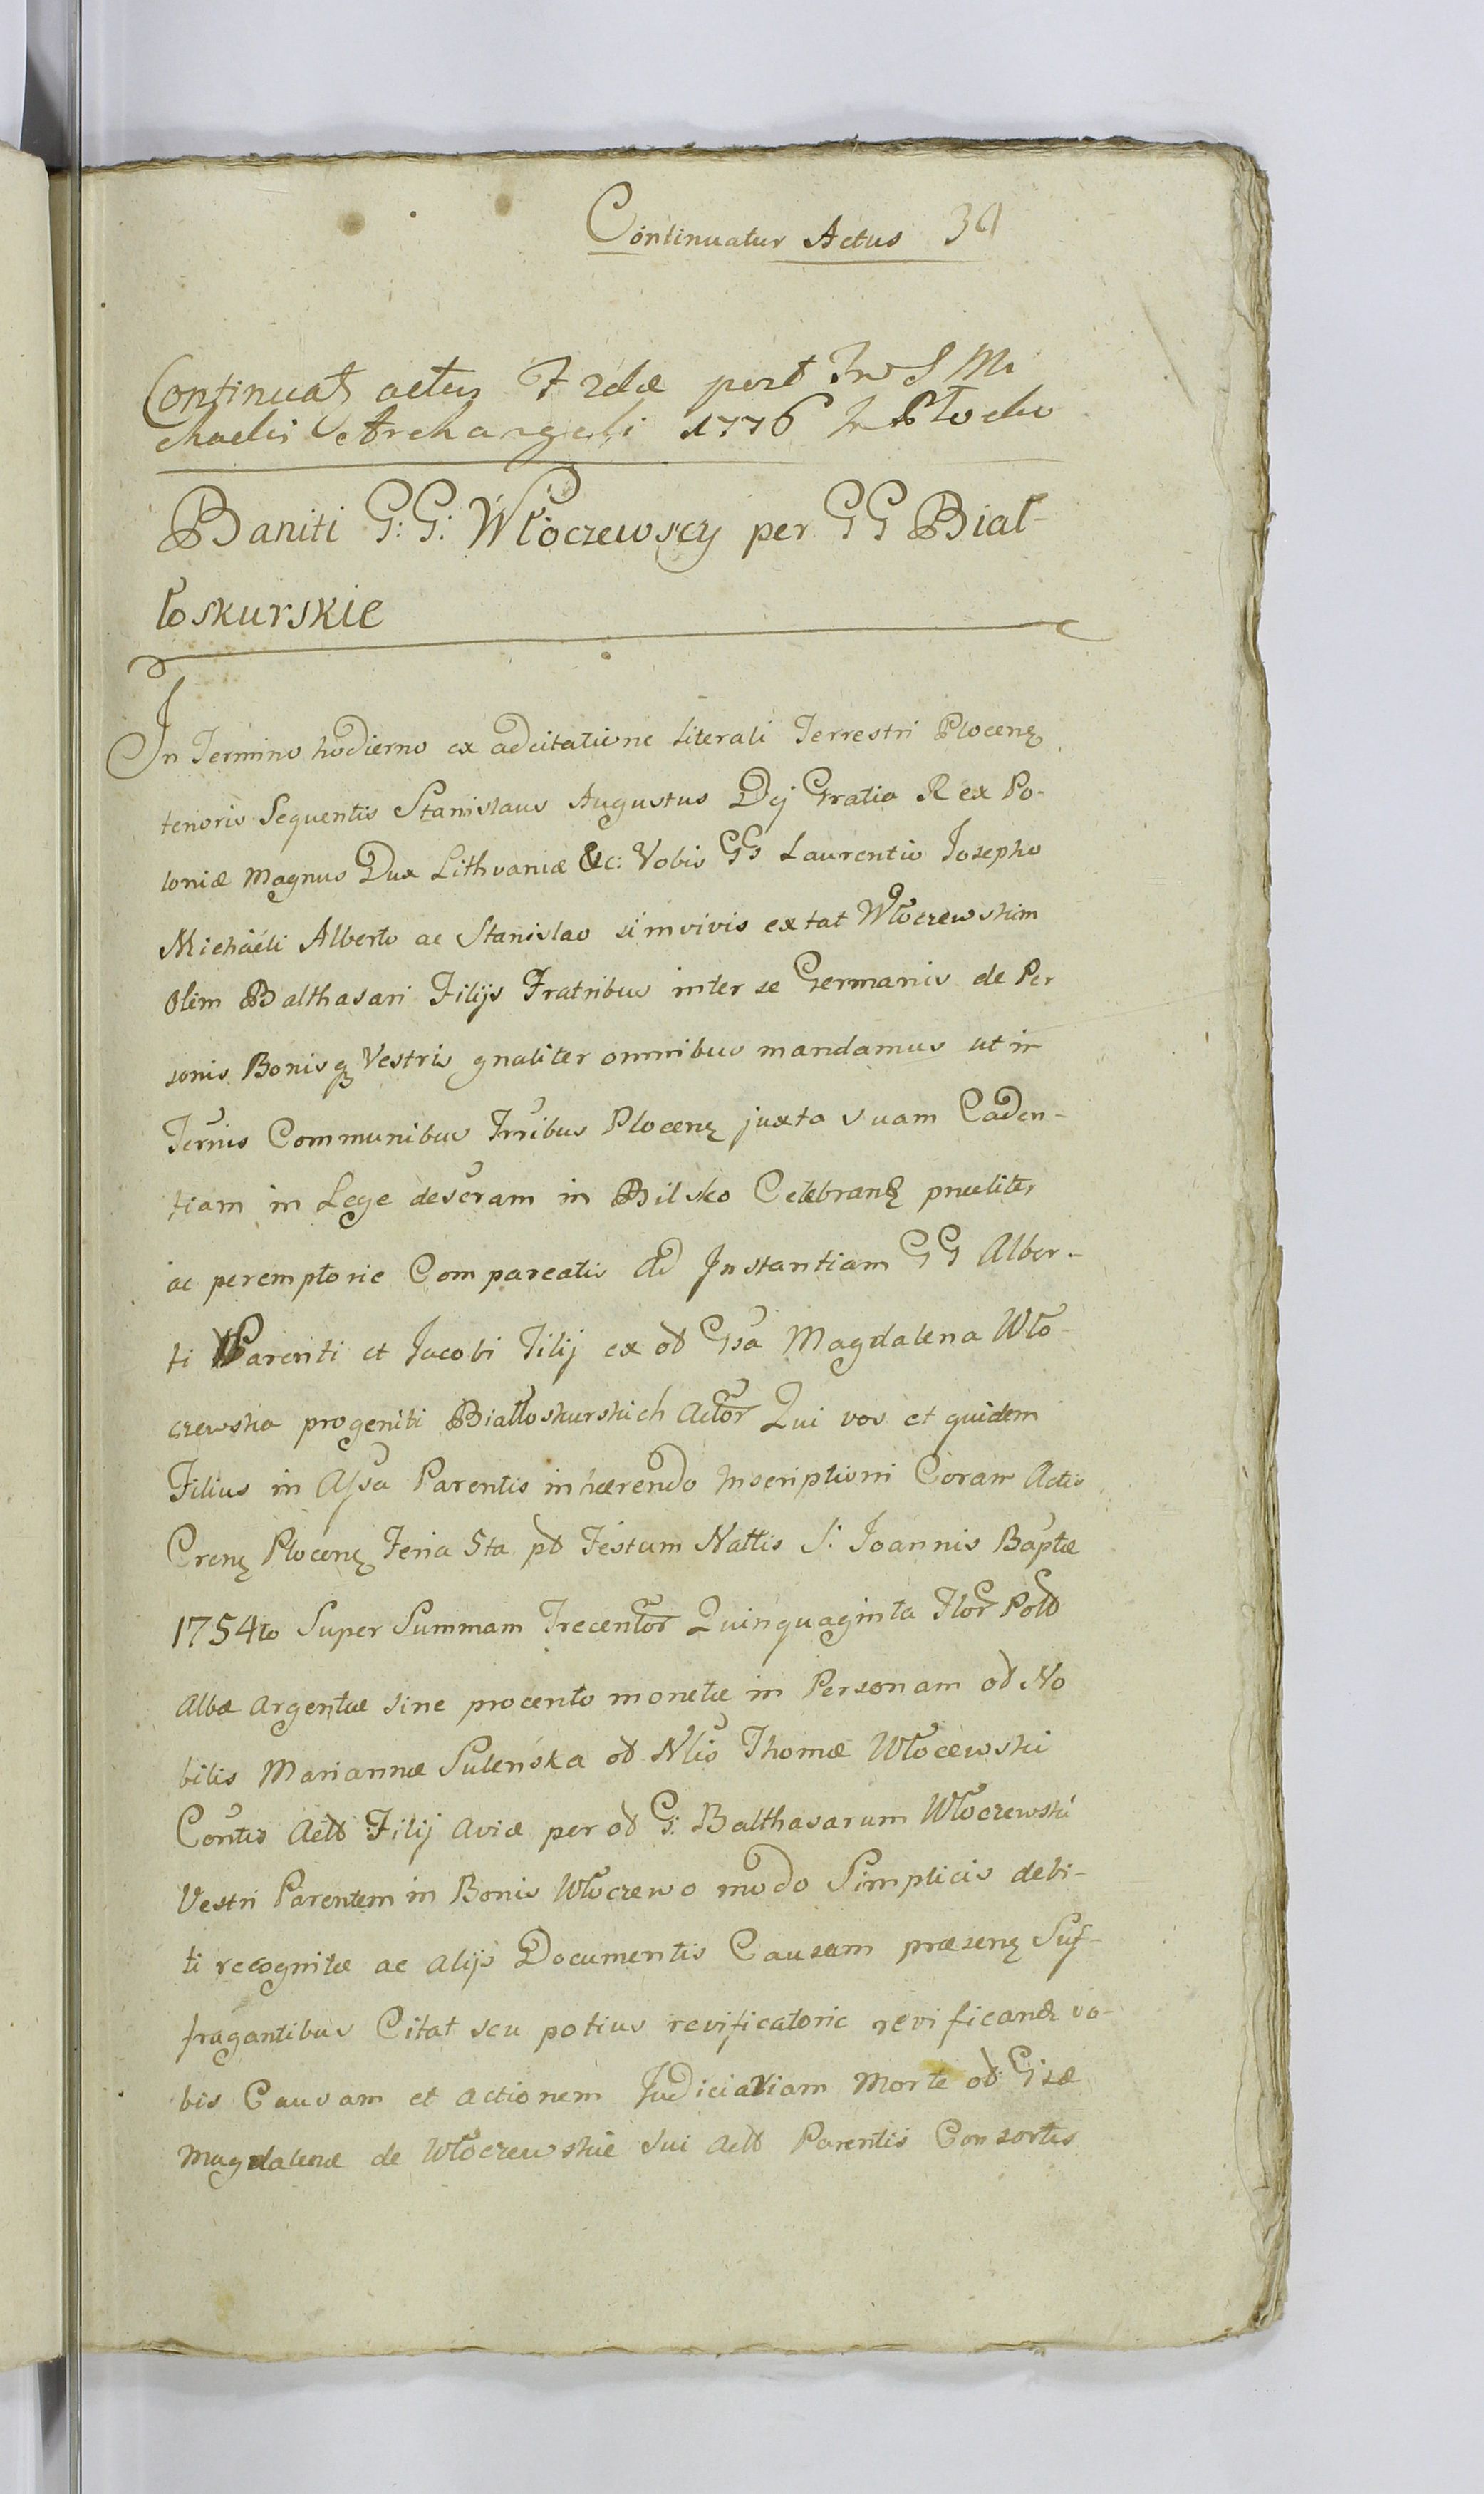 Continuatur Actus 39
Continuat actus F 2dæ post S Mi
chaelis Archangeli 1776 Płocku
Baniti G: G: Włoczewscy per GG Biał-
łoskurskie
In Termino hodierno ex adcitatione literali Terrestri Plocenȝ
tenoris Sequentis Stanislaus Augustus Dej Gratia Rex Po-
loniæ Magnus Dux Lithvaniæ &c: Vobis GG Laurentio Josepho
Michaeli Alberto ac Stanislao si in vivis extat Włoczewskim
Olim Balthasari Filijs Fratribus inter se Germanis de Per
sonis Bonisqȝ Vestris gnaliter omnibus mandamus ut in
Ternis Communibus Trribus Plocenȝ juxta suam Caden-
tiam in Lege descram in Bilsko Celebranȝ pnaliter
ac peremptorie Compareatis Ad Instantiam GG Alber-
ti Parenti et Jacobi Filij ex od Gsa Magdalena Wło
czewska progeniti Białłoskurskich Actor Qui vos et quidem
Filius in Assa Parentis inhærendo Inscriptioni Coram Actis
Crenȝ Plocenȝ Feria 5ta pd Festum Nattis S: Joannis Baptæ
1754to Super Summam Trecentor Quinquaginta Flor Pold
Albæ Argentæ sine procento monetæ in Personam od No
bilis Mariannæ Suleńska od Nlis Thomæ Włocewski
Contis Actd Filij Aviæ per od G: Balthasarum Włoczewski
Vestri Parentem in Bonis Włoczewo modo Simplicis debi-
ti recognitæ ac alijs Documentis Causam præsenȝ Suf-
fragantibus Citat seu potius revificatorie revificanȝ vo-
bis Causam et actionem Judiciariam Morte od Gisæ
Magdalenæ de Włoczewskie sui Actd Parentis Consortis